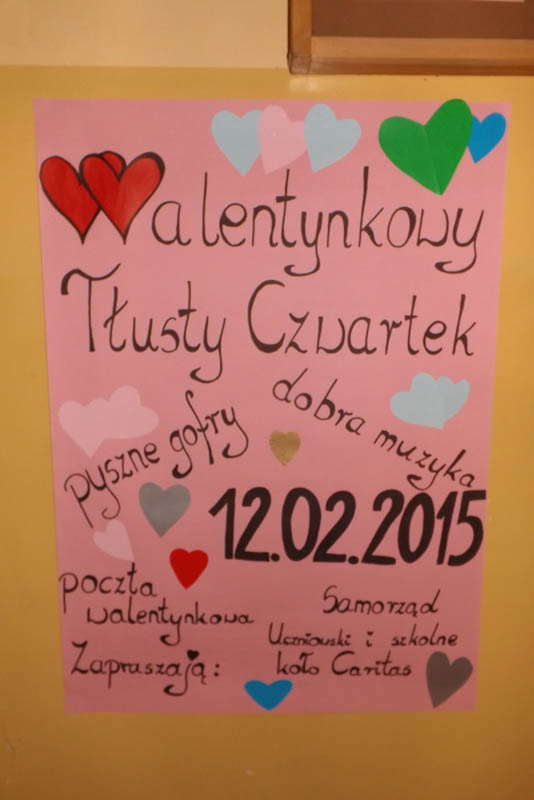 Walentynkowy
Tłusty Czwartek
pyszne gofry
dobra muzyka
12.02.2015
poczta
walentynkowa
Zapraszają:
Samorząd
Uczniowski i szkolne
koło Caritas